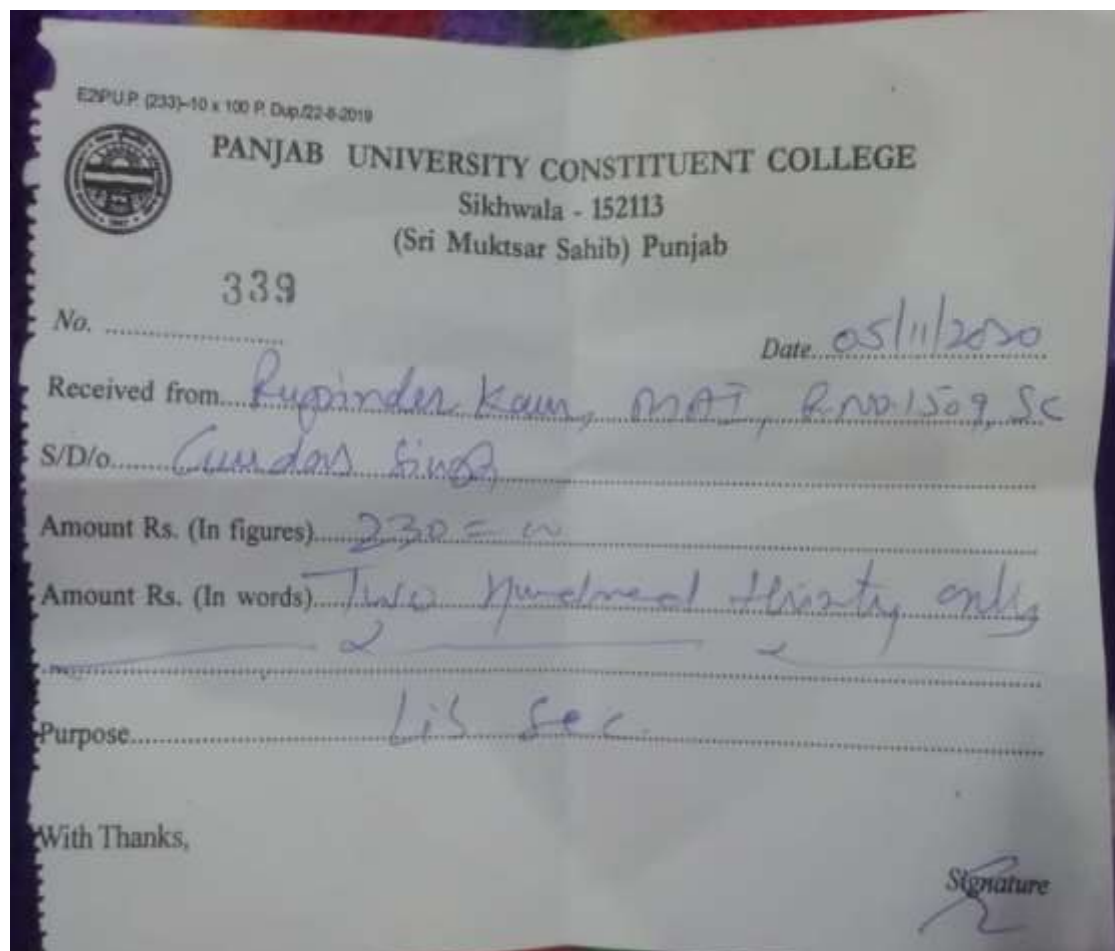 E2/P.U.P. (233)–10 x 100 P. Dup./22-8-2019
PANJAB UNIVERSITY CONSTITUENT COLLEGE
Sikhwala - 152113
(Sri Muktsar Sahib) Punjab
339
No. ....................
Date 05/11/2020
Received from Rupinder Kaur, MAI, R.NO.1509, SC
S/D/o Gurdas Singh
Amount Rs. (In figures) 230=00
Amount Rs. (In words) Two Hundred thirty only
Purpose Lib Sec.
With Thanks,
Signature